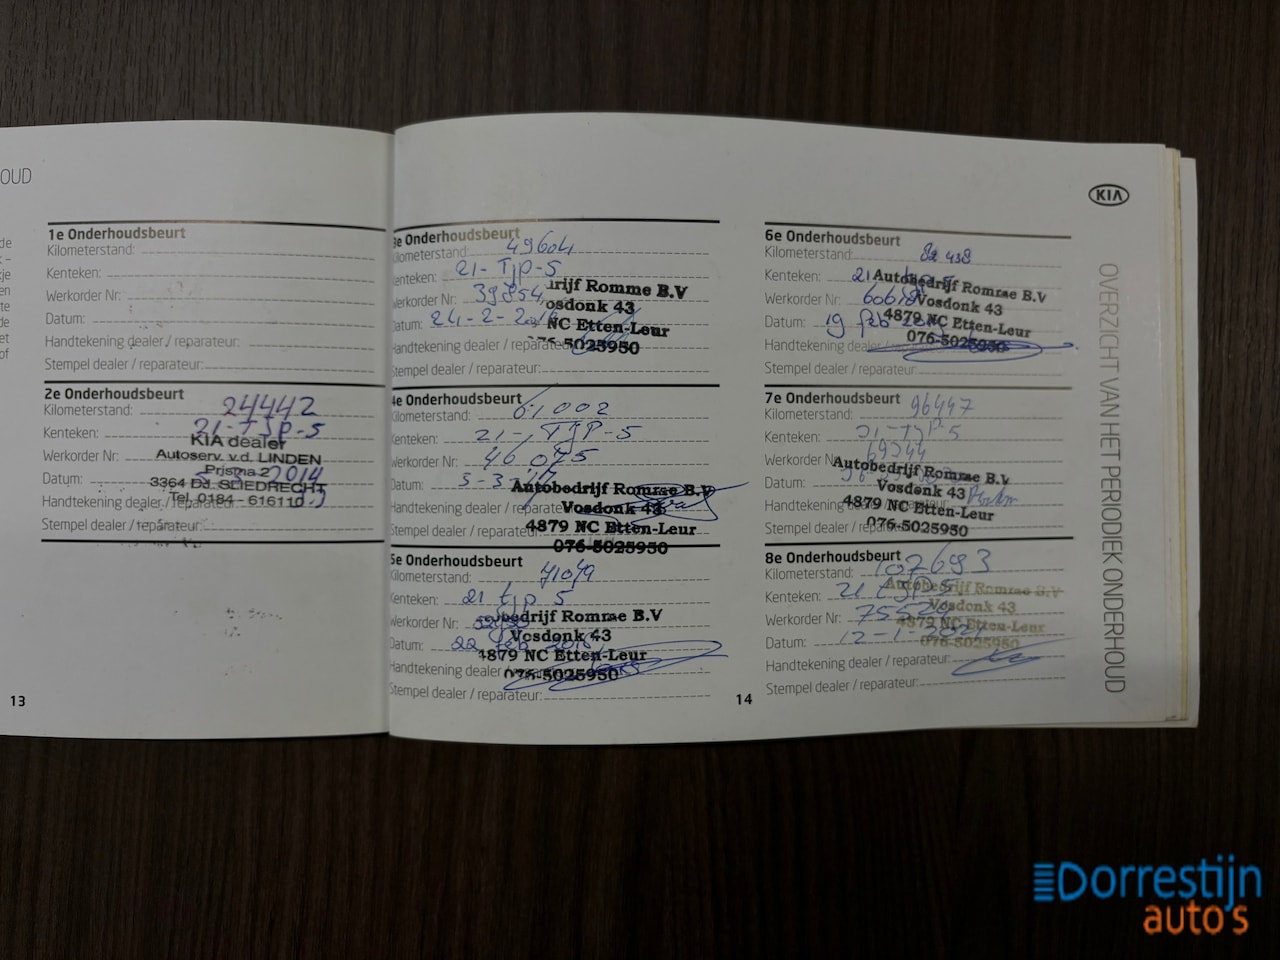 OUD
1e Onderhoudsbeurt
Kilometerstand:
Kenteken:
Werkorder Nr:
Datum:
Handtekening dealer / reparateur:
Stempel dealer / reparateur:
2e Onderhoudsbeurt
Kilometerstand: 24442
Kenteken: 21-TJP-5
KIA dealer
Werkorder Nr:
Autoserv. v.d. LINDEN
Prisma 2
Datum: 2014
3364 DJ SLIEDRECHT
Handtekening dealer / reparateur:
Tel. 0184 - 616110
Stempel dealer / reparateur:
13
3e Onderhoudsbeurt
Kilometerstand: 49604
Kenteken: 21-TJP-5
rijf Romme B.V
Werkorder Nr: 39854
osdonk 43
Datum: 24-2-
NC Etten-Leur
Handtekening dealer / reparateur
76-5025950
Stempel dealer / reparateur:
4e Onderhoudsbeurt
Kilometerstand: 61002
Kenteken: 21-TJP-5
Werkorder Nr: 46075
Datum: 3-3-
Autobedrijf Romme B.V
Handtekening dealer / repara
Vosdonk 43
4879 NC Etten-Leur
Stempel dealer / reparateur:
076-5025950
5e Onderhoudsbeurt
Kilometerstand: 71079
Kenteken: 21 tjp 5
bedrijf Romme B.V
Werkorder Nr:
Vosdonk 43
Datum: 22 feb
4879 NC Etten-Leur
Handtekening dealer /
076-5025950
Stempel dealer / reparateur:
14
KIA
6e Onderhoudsbeurt
Kilometerstand: 82 438
Kenteken: 21
Autobedrijf Romme B.V
Werkorder Nr:
Vosdonk 43
4879 NC Etten-Leur
Datum: 19 feb
076-5025950
Handtekening dealer
Stempel dealer / reparateur:
7e Onderhoudsbeurt
Kilometerstand: 96447
Kenteken: 21-TJP-5
Werkorder Nr 69244
Autobedrijf Romme B.V
Datum:
Vosdonk 43
Handtekening
4879 NC Etten-Leur
Stempel dealer /
076-5025950
8e Onderhoudsbeurt
Kilometerstand: 107693
Kenteken: 21 TJP5
Autobedrijf Romme B.V
Werkorder Nr:
Vosdonk 43
4879 NC Etten-Leur
Datum: 12-1-
076-5025950
Handtekening dealer / reparateur:
Stempel dealer / reparateur:
OVERZICHT VAN HET PERIODIEK ONDERHOUD
Dorrestijn
auto's